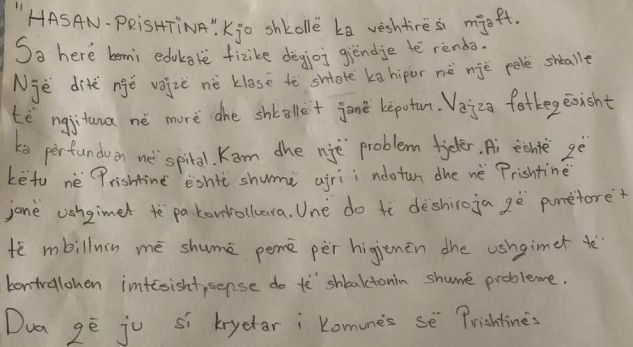 "HASAN-PRISHTINA". Kjo shkollë ka vështirësi mjaft.
Sa herë kemi edukatë fizike dëgjoj gjëndje të rënda.
Një ditë një vajzë në klasë të shtatë ka hipur në një palë shkallë
të ngjitura në murë dhe shkallët janë këputur. Vajza fatkeqësisht
ka përfunduar në spital. Kam dhe një problem tjetër. Ai është që
këtu në Prishtinë është shumë ajri i ndotur dhe në Prishtinë
janë ushqimet të pa kontrolluara. Unë do të dëshiroja që punëtorët
të mbillnin më shumë pemë për higjenën dhe ushqimet të
kontrollohen imtësisht, sepse do të shkaktonin shumë probleme.
Dua që ju si kryetar i Komunës së Prishtinës